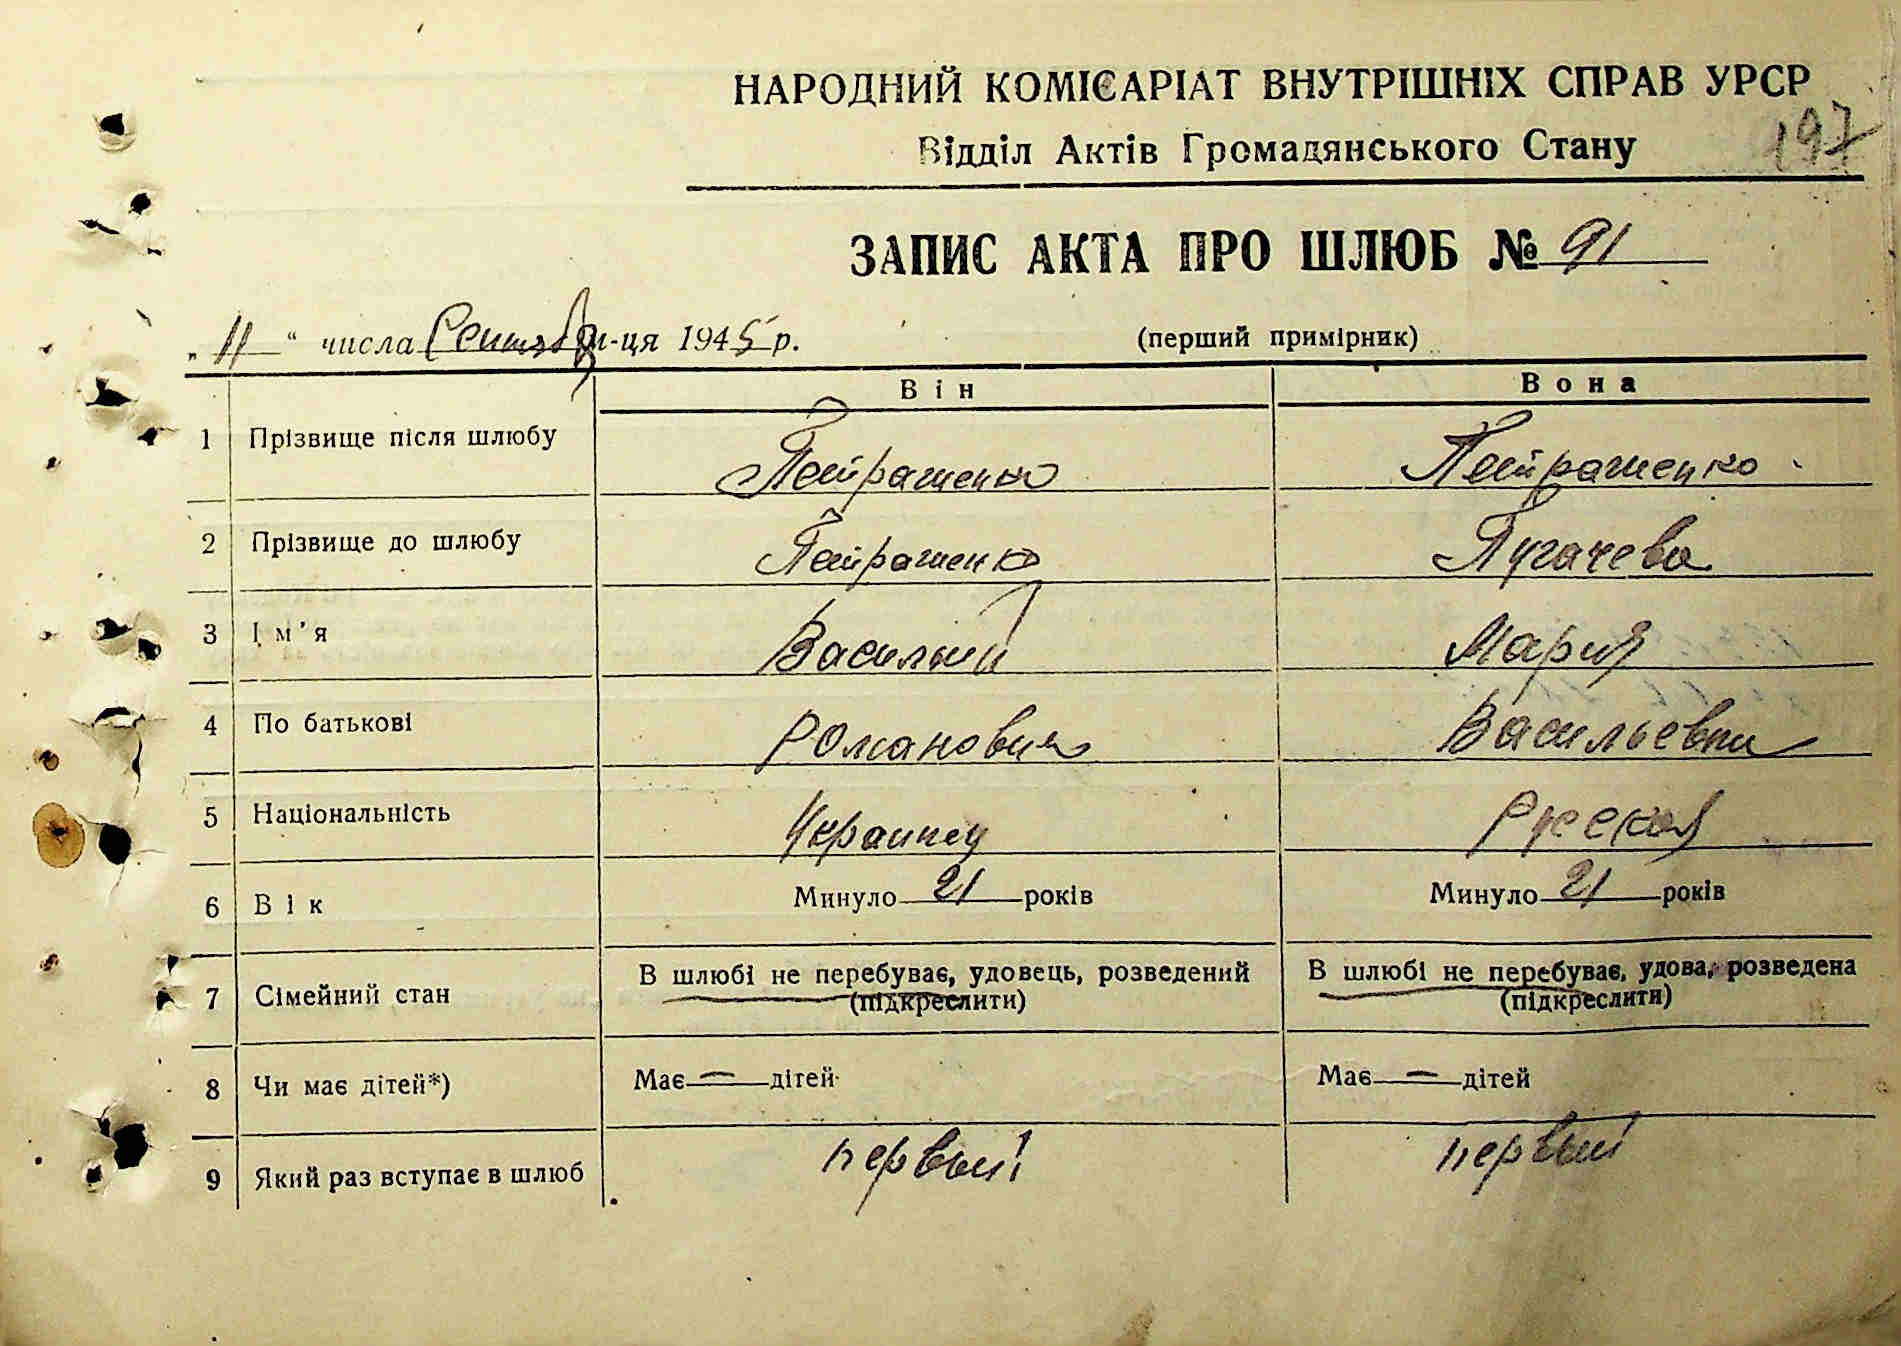 НАРОДНИЙ КОМІСАРІАТ ВНУТРІШНІХ СПРАВ УРСР
Відділ Актів Громадянського Стану
197
ЗАПИС АКТА ПРО ШЛЮБ № 91
„11“ числа Сентября м-ця 1945 р. (перший примірник)
Він Вона
1 Прізвище після шлюбу Петрашенко Петрашенко
2 Прізвище до шлюбу Петрашенко Пугачева
3 Ім’я Василий Мария
4 По батькові Романович Васильевна
5 Національність Украинец Русская
6 Вік Минуло 21 років Минуло 21 років
7 Сімейний стан В шлюбі не перебуває, удовець, розведений В шлюбі не перебуває, удова, розведена
(підкреслити) (підкреслити)
8 Чи має дітей*) Має — дітей Має — дітей
9 Який раз вступає в шлюб первый первый